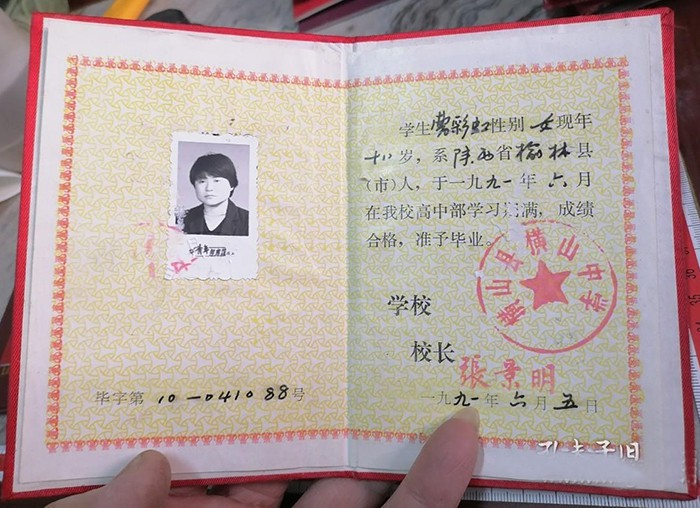 毕字第 10-041088 号
学生曹彩虹性别 女 现年
十八岁，系陕西省榆林县
（市）人，于一九九一年 六 月
在我校高中部学习期满，成绩
合格，准予毕业。
横山县横山中学
学校
校长
張景明
一九九一年 六 月 五 日
孔夫子旧